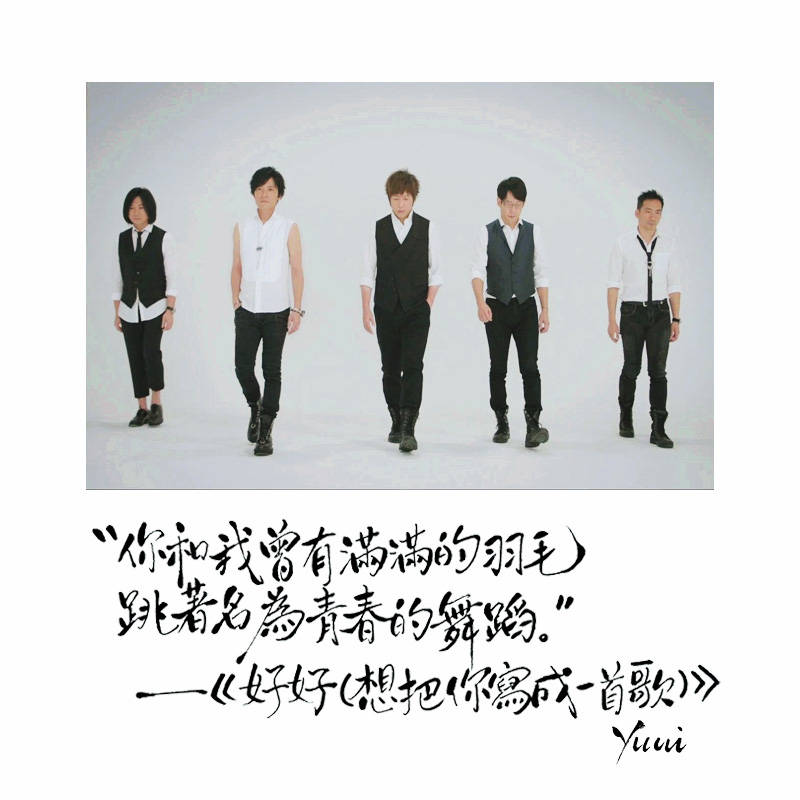 “你和我曾有滿滿的羽毛
跳著名為青春的舞蹈。”
—《好好(想把你寫成一首歌)》
Yuui